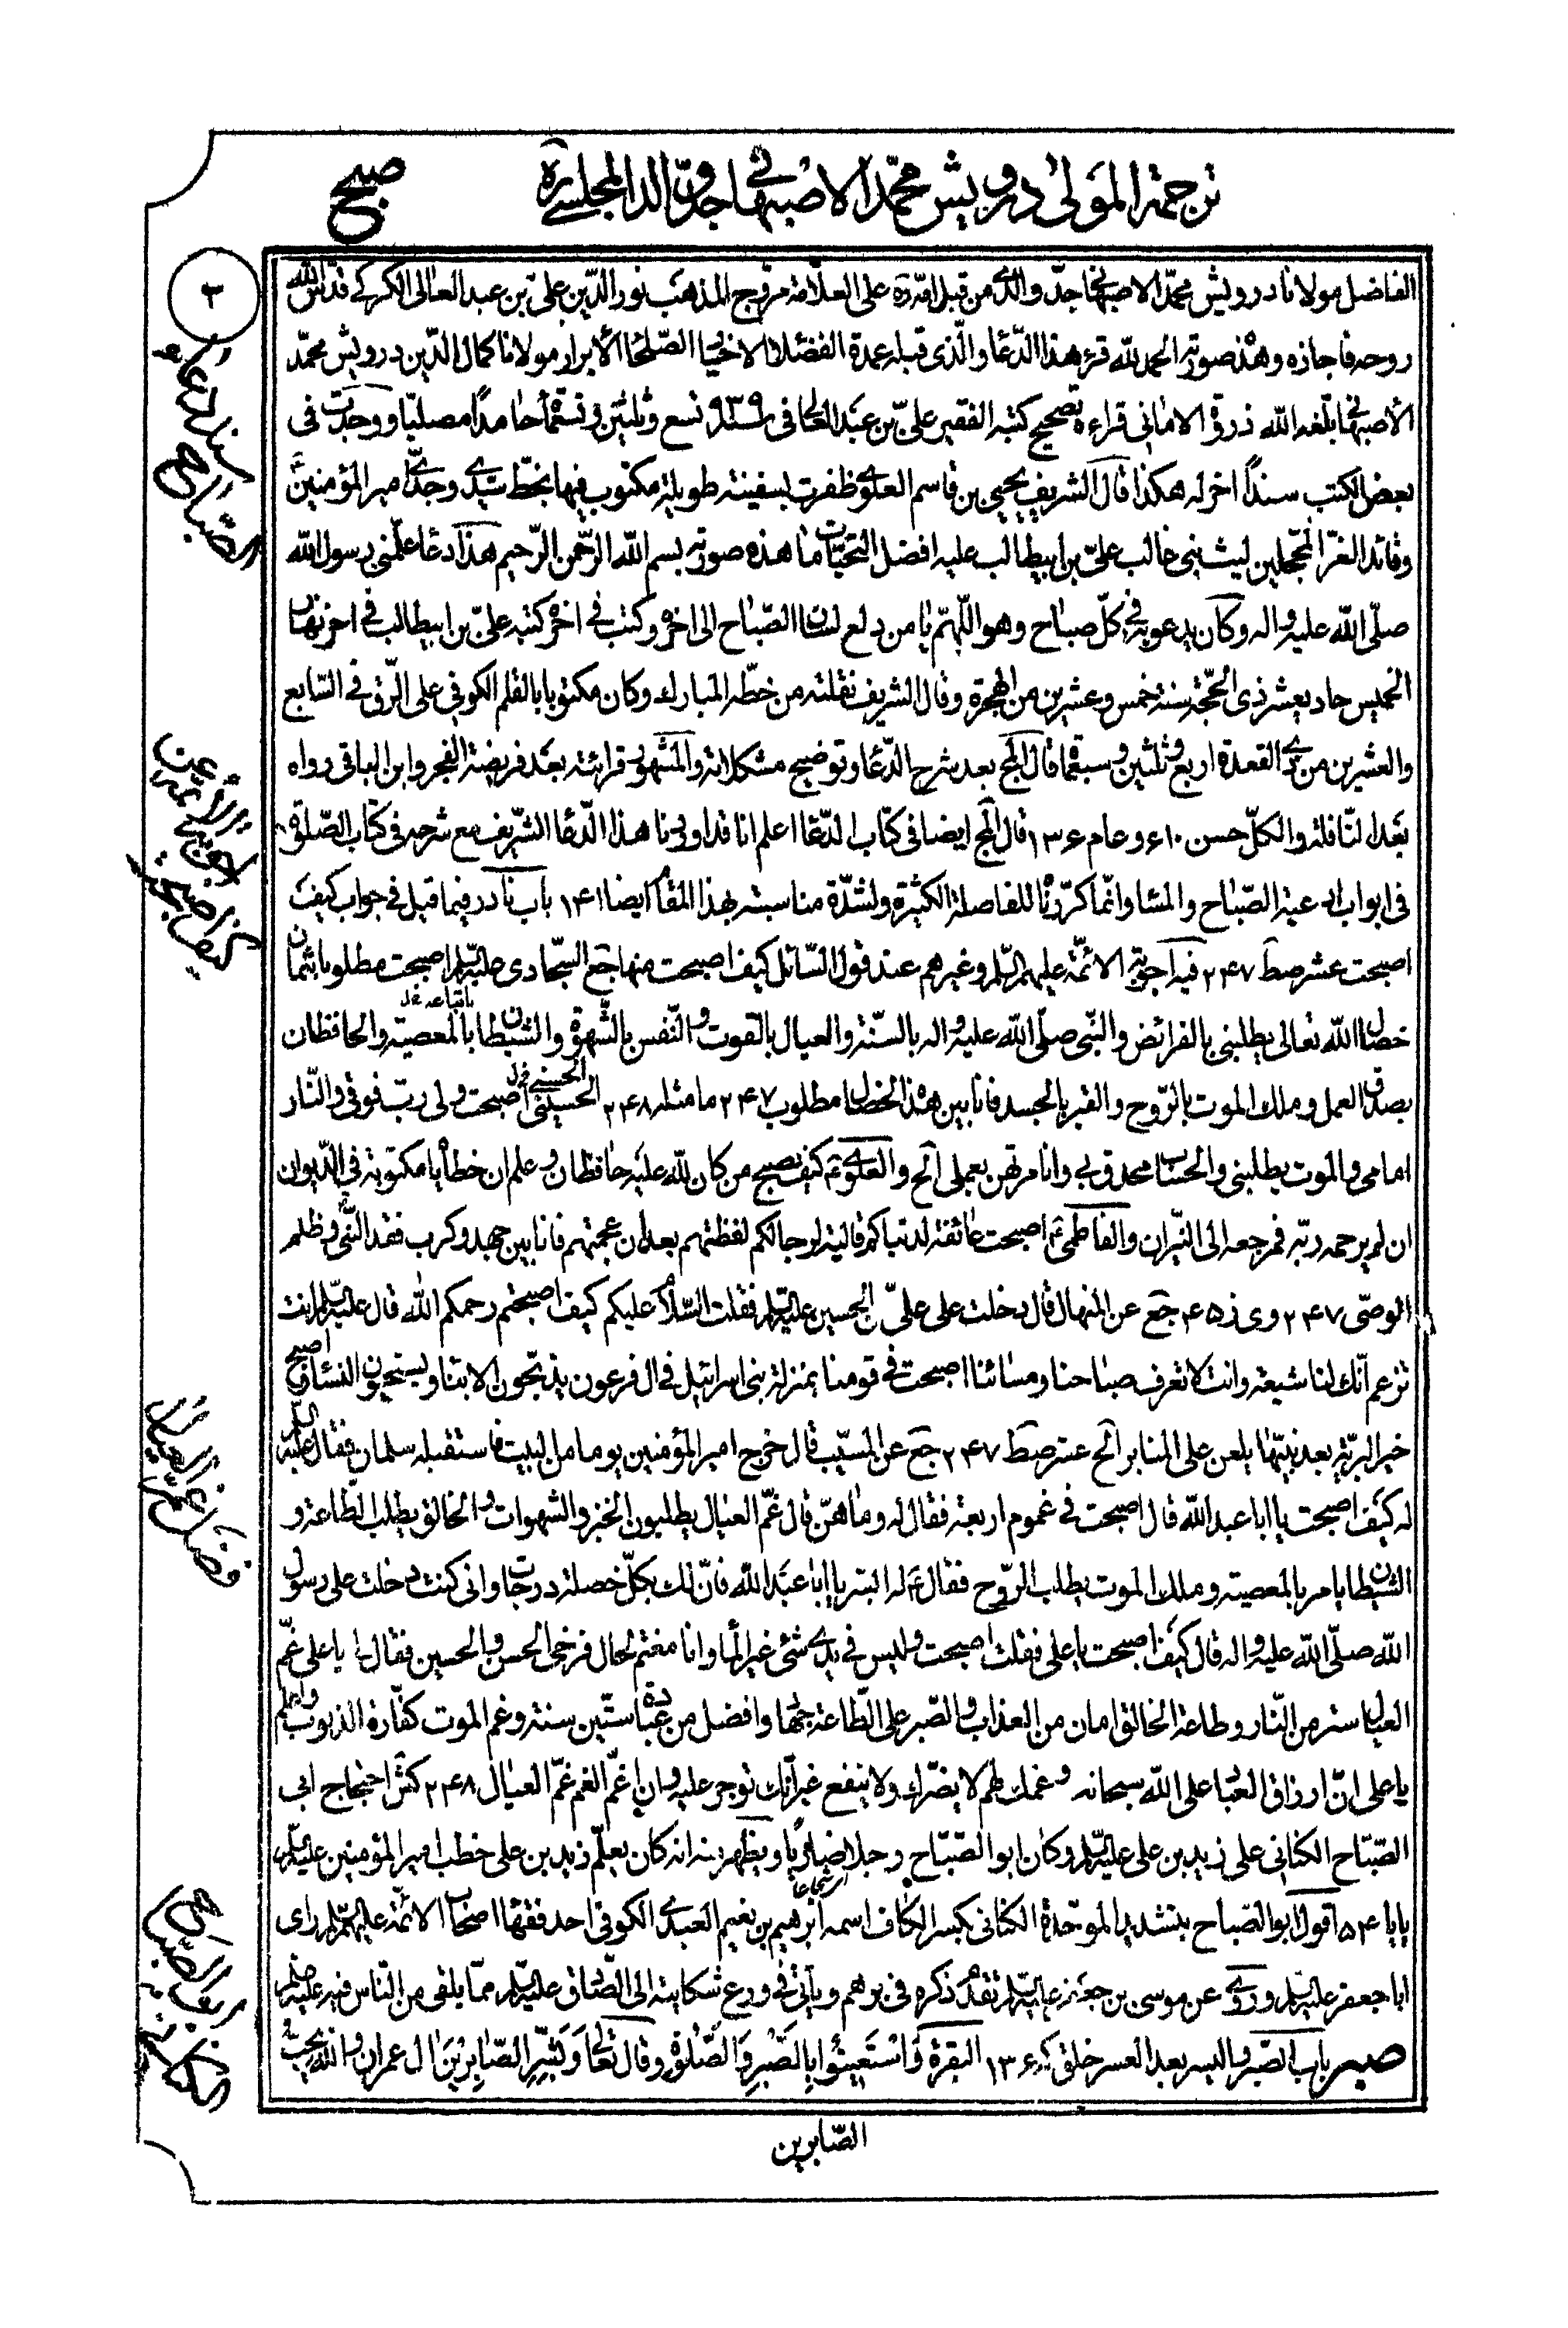 ترجمة المولى درويش محمد الاصبهاني جد والد المجلسي ره
صبح
٣
الفاضل مولانا درويش محمد الاصبهاني جد والدي من قبل امه ره على العلامة مروج المذهب نور الدين علي بن عبد العالي الكركي قدس الله
روحه فاجازه وهذه صورته الحمد لله قرء هذا الدعاء والذي قبله عمدة الفضلاء الاخيار الصلحاء الأبرار مولانا كمال الدين درويش محمد
الأصبهاني بلغه الله ذروة الاماني قراءة تصحيح كتبه الفقير علي بن عبد العالي في سنة ٩٣٩ تسع وثلثين وتسعمائة حامدا مصليا ووجدت في
بعض الكتب سندا اخر له هكذا قال الشريف يحيى بن قاسم العلوي ظفرت بسفينة طويلة مكتوب فيها بخط سيدي وجدي امير المؤمنين
وقائد الغر المحجلين ليث بني غالب علي بن ابيطالب عليه افضل التحيات ما هذه صورته بسم الله الرحمن الرحيم هذا دعاء علمني رسول الله
صلى الله عليه واله وكان يدعو به في كل صباح وهو اللهم يا من دلع لسان الصباح الى اخره وكتب في اخره كتبه علي بن ابيطالب في اخر نهار
الخميس حاديعشر ذي الحجة سنة خمس وعشرين من الهجرة وقال الشريف نقلته من خطه المبارك وكان مكتوبا بالقلم الكوفي على الرق في السابع
والعشرين من ذي القعدة اربع وثلثين وسبعمائة قال المج بعد شرح الدعاء وتوضيح مشكلاته والمشهور قرائته بعد فريضة الفجر وابن الباقي رواه
بعد النافلة والكل حسن ١٠ء وعام ١٣۶ قال المج ايضا في كتاب الدعاء اعلم انا قد اوردنا هذا الدعاء الشريف مع شرحه في كتاب الصلوة
في ابواب ادعية الصباح والمساء وانما كررناه للفاصلة الكثيرة ولشدة مناسبته بهذا المقام ايضا ١۴١ باب نادر فيما قيل في جواب كيف
اصبحت عشر صط ٢۴٧ فيه اجوبة الائمة عليهم السلم وغيرهم عند قول السائل كيف اصبحت منها جع السجادي عليه السلم اصبحت مطلوبا بثمان
خصال الله تعالى يطلبني بالفرائض والنبي صلى الله عليه واله بالسنة والعيال بالقوت والنفس بالشهوة والشيطان بالمعصية والحافظان
باتباعه خ‌ل
بصدق العمل وملك الموت بالروح والقبر بالجسد فانا بين هذه الخصال مطلوب ٢۴٧ ما مثله ٢۴٨ الحسيني اصبحت ولي رب فوقي والنار
الحسني خ‌ل
امامي والموت يطلبني والحساب محدق بي وانا مرتهن بعملي الخ والعلوي ع كيف يصبح من كان لله عليه حافظان وعلم ان خطاياه مكتوبة في الديوان
ان لم يرحمه ربه فمرجعه الى النيران والفاطمي ع اصبحت عائفة لدنياكم قالية لرجالكم لفظتهم بعد ان عجمتهم فانا بين جهد وكرب فقد النبي وظلم
الوصي ٢۴٧ وي ز ۴۵ جع عن المنهال قال دخلت على علي بن الحسين عليه السلم فقلت السلام عليكم كيف اصبحتم رحمكم الله قال عليه السلم انت
تزعم انك لنا شيعة وانت لا تعرف صباحنا ومسائنا اصبحنا في قومنا بمنزلة بني اسرائيل في ال فرعون يذبحون الابناء ويستحيون النساء واصبح
خير البرية بعد نبيها يلعن على المنابر الخ عشر صط ٢۴٧ جع عن المسيب قال خرج امير المؤمنين يوما من البيت فاستقبله سلمان فقال عليه السلم
له كيف اصبحت يا ابا عبد الله قال اصبحت في غموم اربعة فقال له وما هن قال غم العيال يطلبون الخبز والشهوات والخالق يطلب الطاعة و
الشيطان يامر بالمعصية وملك الموت يطلب الروح فقال ع له ابشر يا ابا عبد الله فان لك بكل خصلة درجات واني كنت دخلت على رسول
الله صلى الله عليه واله قال كيف اصبحت يا علي فقلت اصبحت وليس في يدي شئ غير الماء وانا مغتم لحال فرخي الحسن والحسين فقال لي يا علي غم
العيال ستر من النار وطاعة الخالق امان من العذاب والصبر على الطاعة جهاد وافضل من عبادة ستين سنة وغم الموت كفارة الذنوب واعلم
يا علي ان ارزاق العباد على الله سبحانه وغمك لهم لا يضرك ولا ينفع غير انك توجر عليه وان اغم الغم غم العيال ٢۴٨ كش احتجاج ابي
الصباح الكناني على زيد بن علي عليه السلم وكان ابو الصباح رجلا ضاريا ويظهر منه انه كان يعلم زيد بن علي خطب امير المؤمنين عليه السلم
اى شجاعا
يايا ۵۴ اقول ابو الصباح بتشديد الموحدة الكناني بكسر الكاف اسمه ابرهيم بن نعيم العبدي الكوفي احد فقهاء اصحاب الائمة عليهم السلم راى
ابا جعفر عليه السلم وروى عن موسى بن جعفر عليه السلم تقدم ذكره في برهم وياتي في ورع شكايته الى الصادق عليه السلم مما يلقى من الناس فيه عليه السلم
صبر باب الصبر واليسر بعد العسر خلق كه ١٣۶ البقرة وَاسْتَعِينُوا بِالصَّبْرِ وَالصَّلٰوةِ وقال تعالى وَبَشِّرِ الصَّابِرِينَ ال عمران والله يحب
الصابرين
سند دعاء
الصباح
فضل غم العيال
الكناني